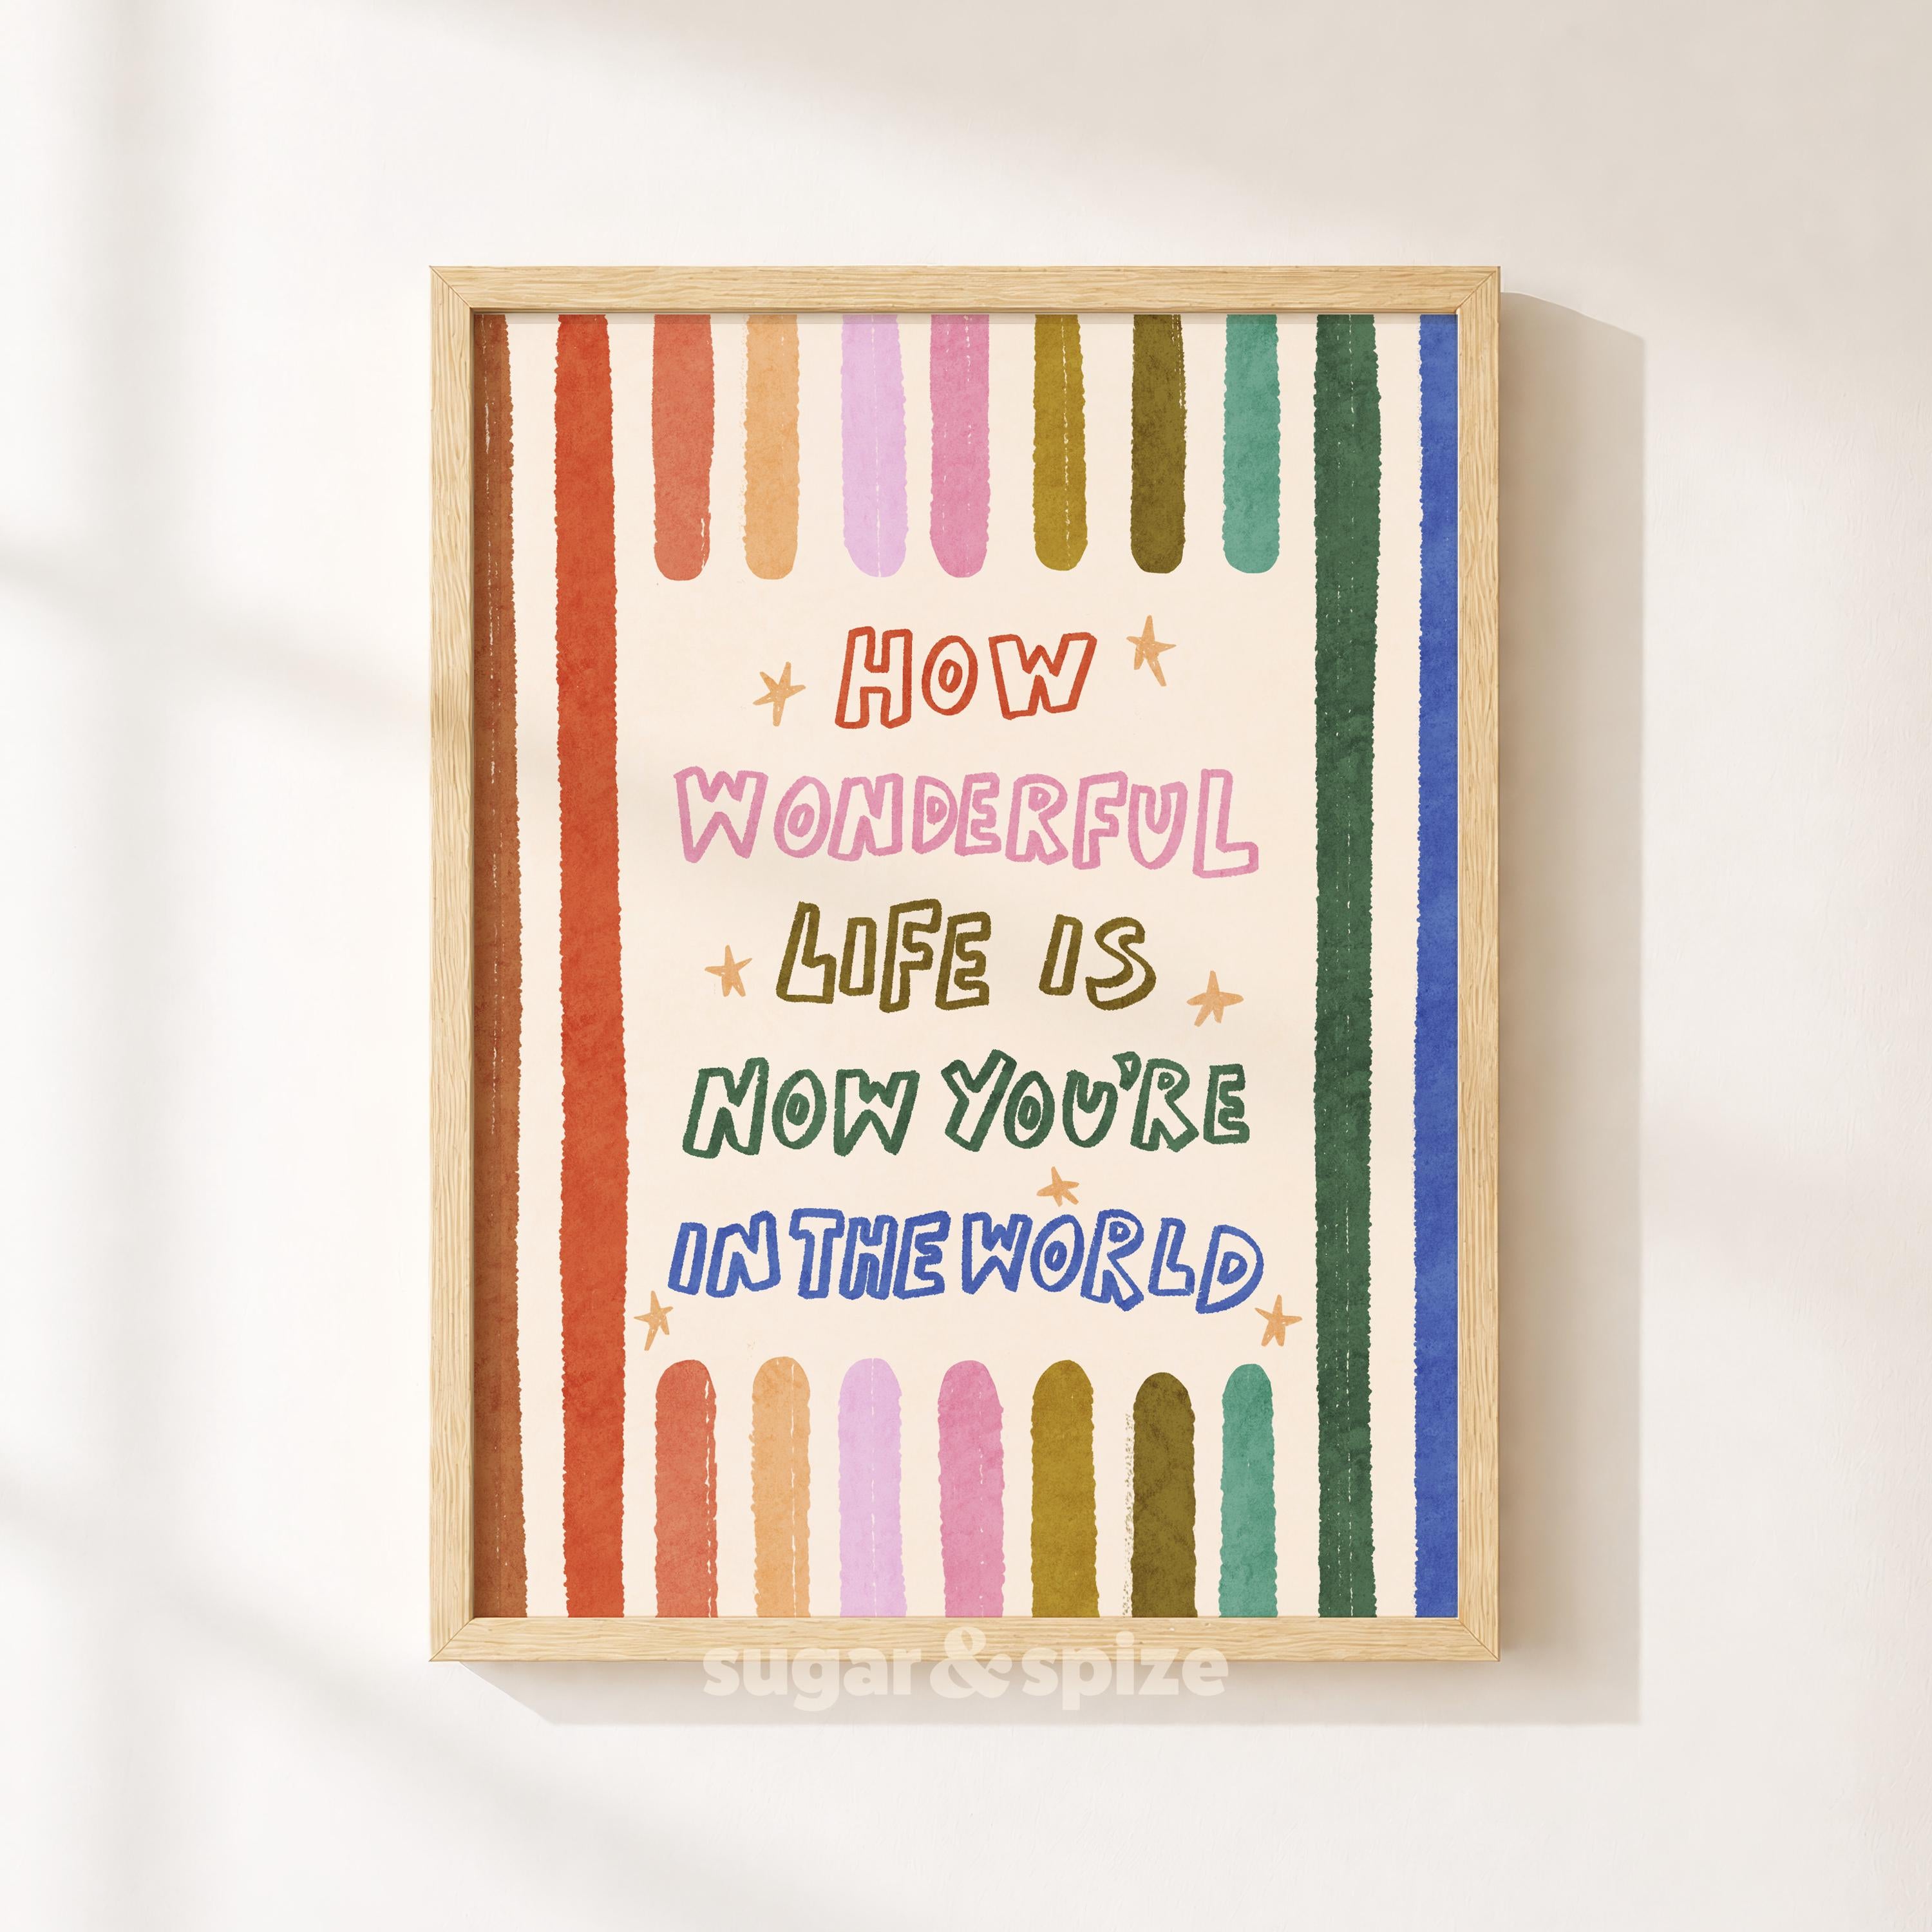 HOW
WONDERFUL
LIFE IS
NOW YOU'RE
IN THE WORLD
sugar&spize